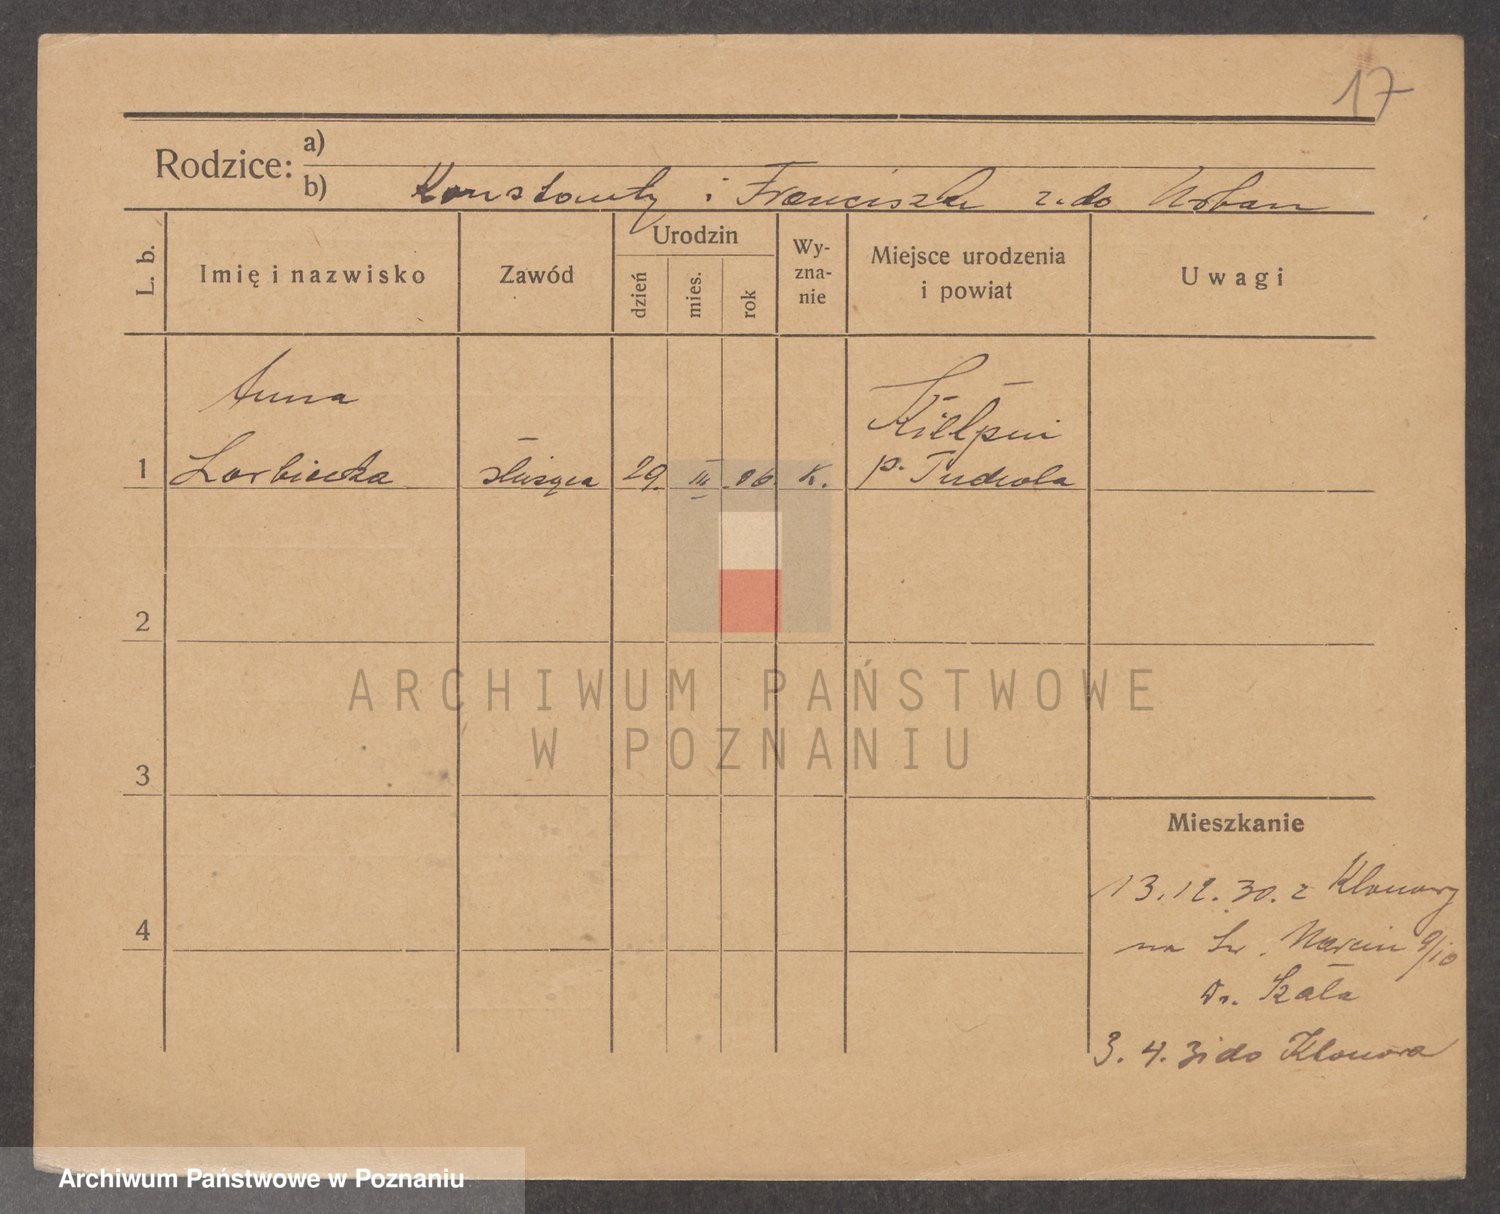 17
Rodzice:
a)
b) Konstanty i Franciszka z.do Urban
L. b.
Imię i nazwisko
Zawód
Urodzin
dzień
mies.
rok
Wy-
zna-
nie
Miejsce urodzenia
i powiat
Uwagi
Anna
Kiełpin
1 Lorbiecka służąca 29. III 06 K. p. Tuchola
2
3
4
ARCHIWUM PAŃSTWOWE
W POZNANIU
Mieszkanie
13.12.30. z Klonowy
na Św. Marcin 9/10
Dr. Szała
3. 4. 31 do Klonowa
Archiwum Państwowe w Poznaniu